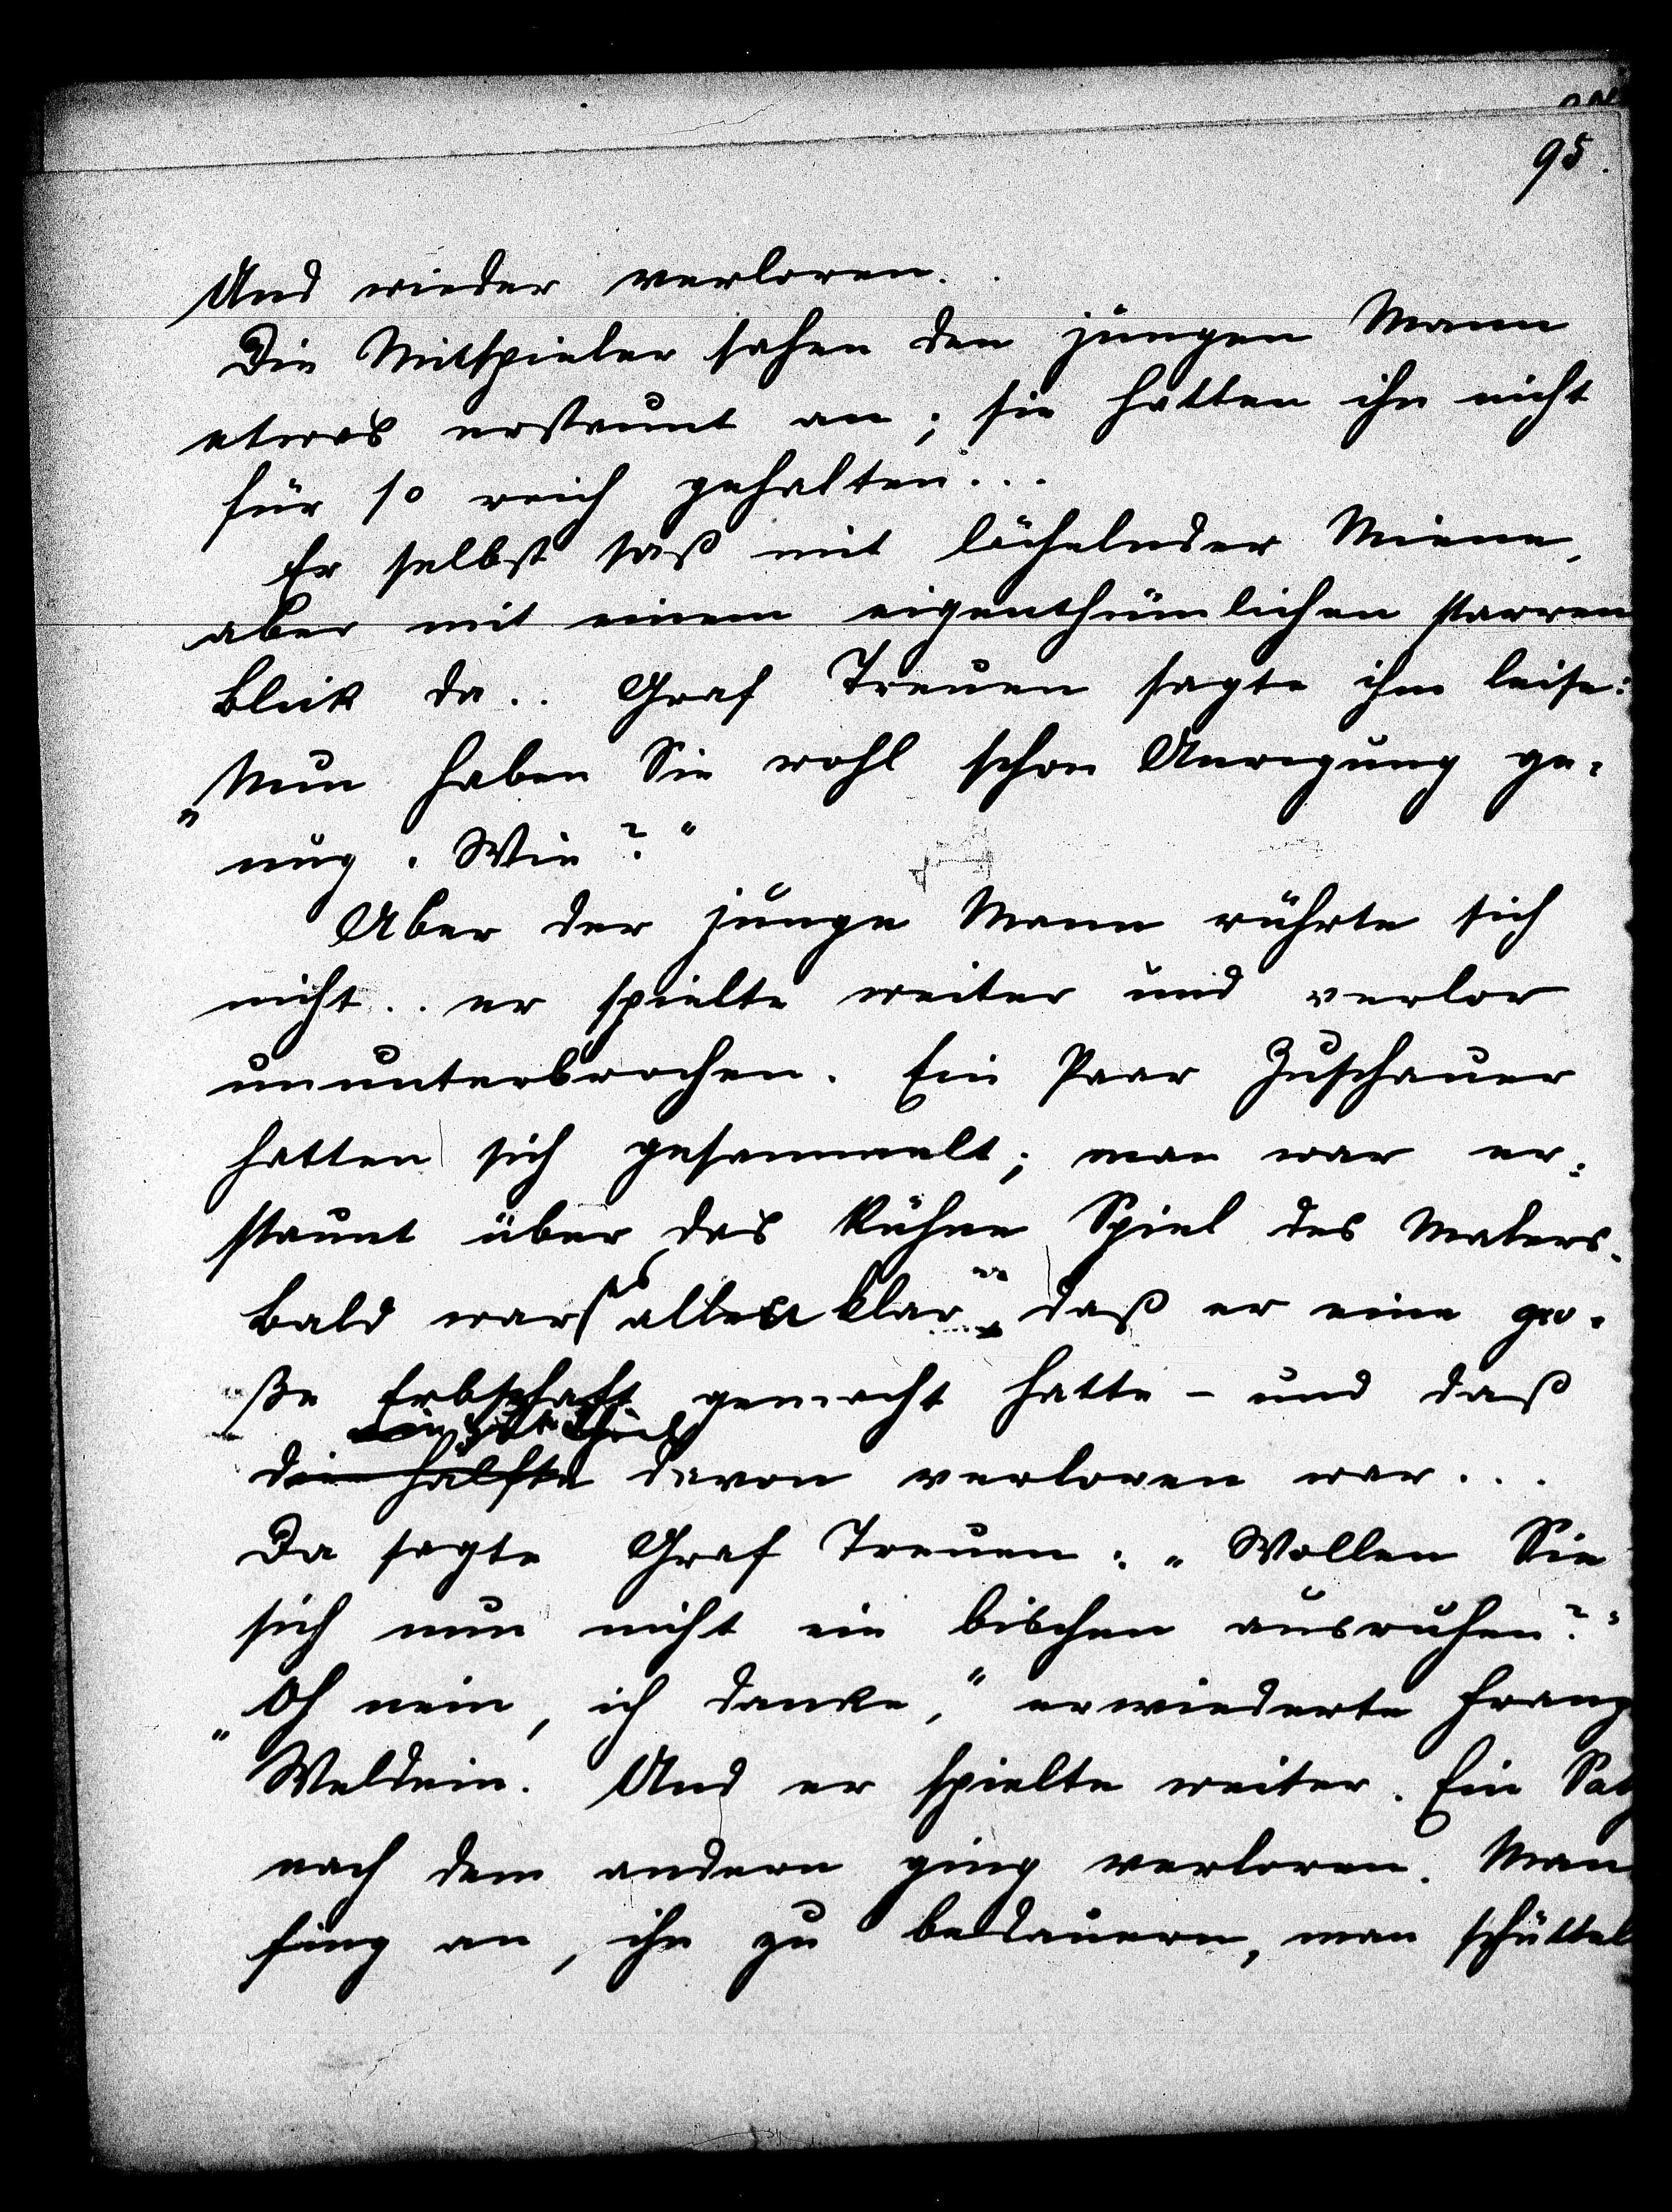 95.
Und wieder verloren.
Die Mitspieler sahen den jungen Mann
etwas erstaunt an; sie hatten ihn nicht
für so reich gehalten...
Er selbst saß mit lächelnder Miene,
aber mit einem eigenthümlichen starren
Blick da.. Graf Treuen sagte ihm leise:
„Nun haben Sie wohl schon Anregung ge-
nug. Wie?“
Aber der junge Mann rührte sich
nicht.. er spielte weiter und verlor
ununterbrochen. Ein Paar Zuschauer
hatten sich gesammelt; man war er-
staunt über das kühne Spiel des Malers.
Bald war es allen klar, daß er eine gro-
ße Erbschaft gemacht hatte – und daß
ein gut Theil
die Hälfte davon verloren war...
Da sagte Graf Treuen: „Wollen Sie
sich nun nicht ein bischen ausruhen?“
„Oh nein, ich danke,“ erwiederte Franz
Weldein. Und er spielte weiter. Ein Satz
nach dem andern ging verloren. Man
fing an, ihn zu bedauern, man schüttel